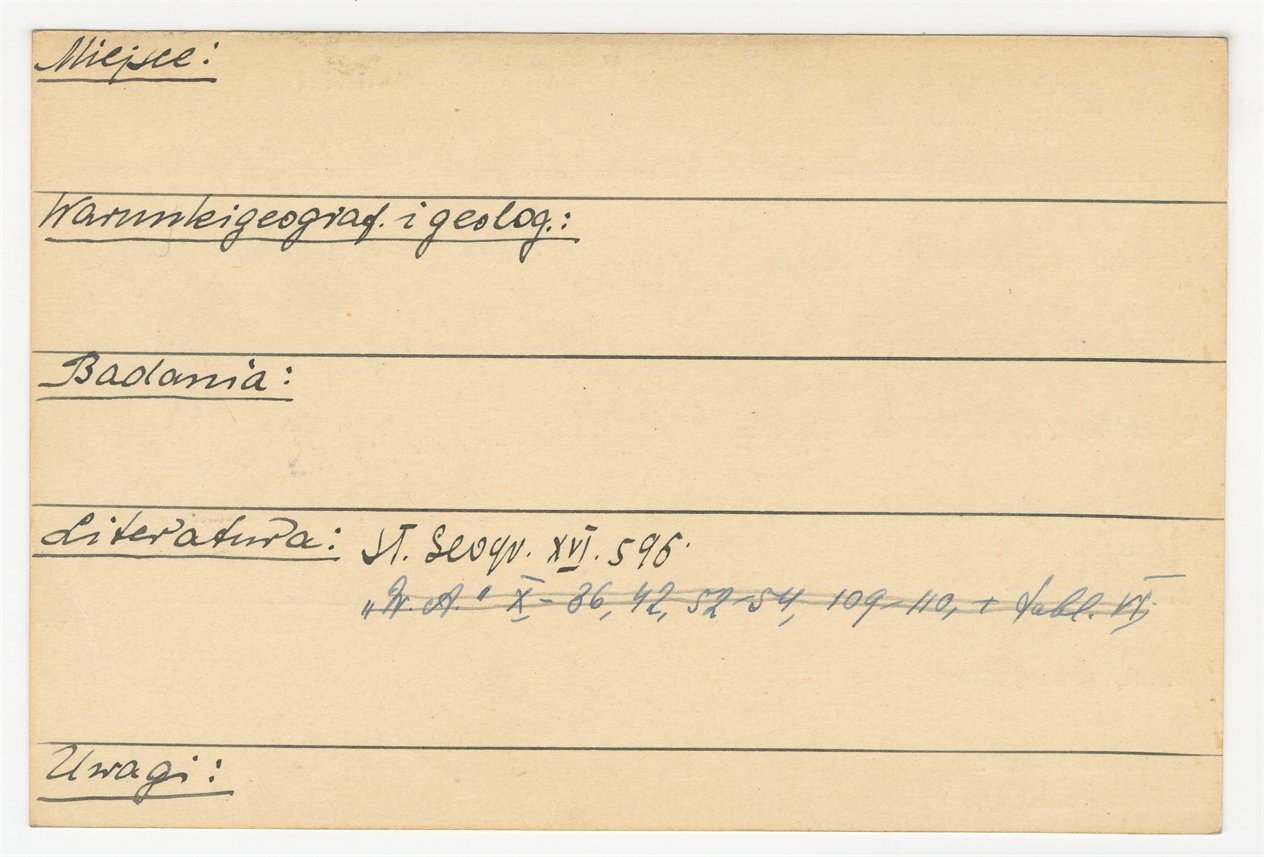 Miejsce:
Warunki geograf. i geolog.:
Badania:
Literatura: Sł. Geogr. XVI. 596.
„W. A." X - 36, 42, 52-54, 109-110, + tabl. VI.
Uwagi: